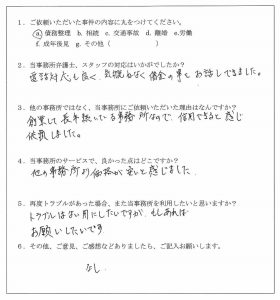 1．ご依頼いただいた事件の内容に丸をつけてください。
ⓐ債務整理 b. 相続 c. 交通事故 d. 離婚 e.労働
f. 成年後見 g. その他（　　　　　　　）
2．当事務所弁護士、スタッフの対応はいかがでしたか？
電話対応も良く、気兼ねなく借金の事をお話しできました。
3．他の事務所ではなく、当事務所にご依頼いただいた理由はなんですか？
創業して長年続いている事務所なので、信用できると感じ
依頼しました。
4．当事務所のサービスで、良かった点はどこですか？
他の事務所より価格が安いと感じました。
5．再度トラブルがあった場合、また当事務所を利用したいと思いますか？
トラブルはない用にしたいですが、もしあれば
お願いしたいです
6．その他、ご意見、ご感想などありましたら、ご記入お願いします。
なし。